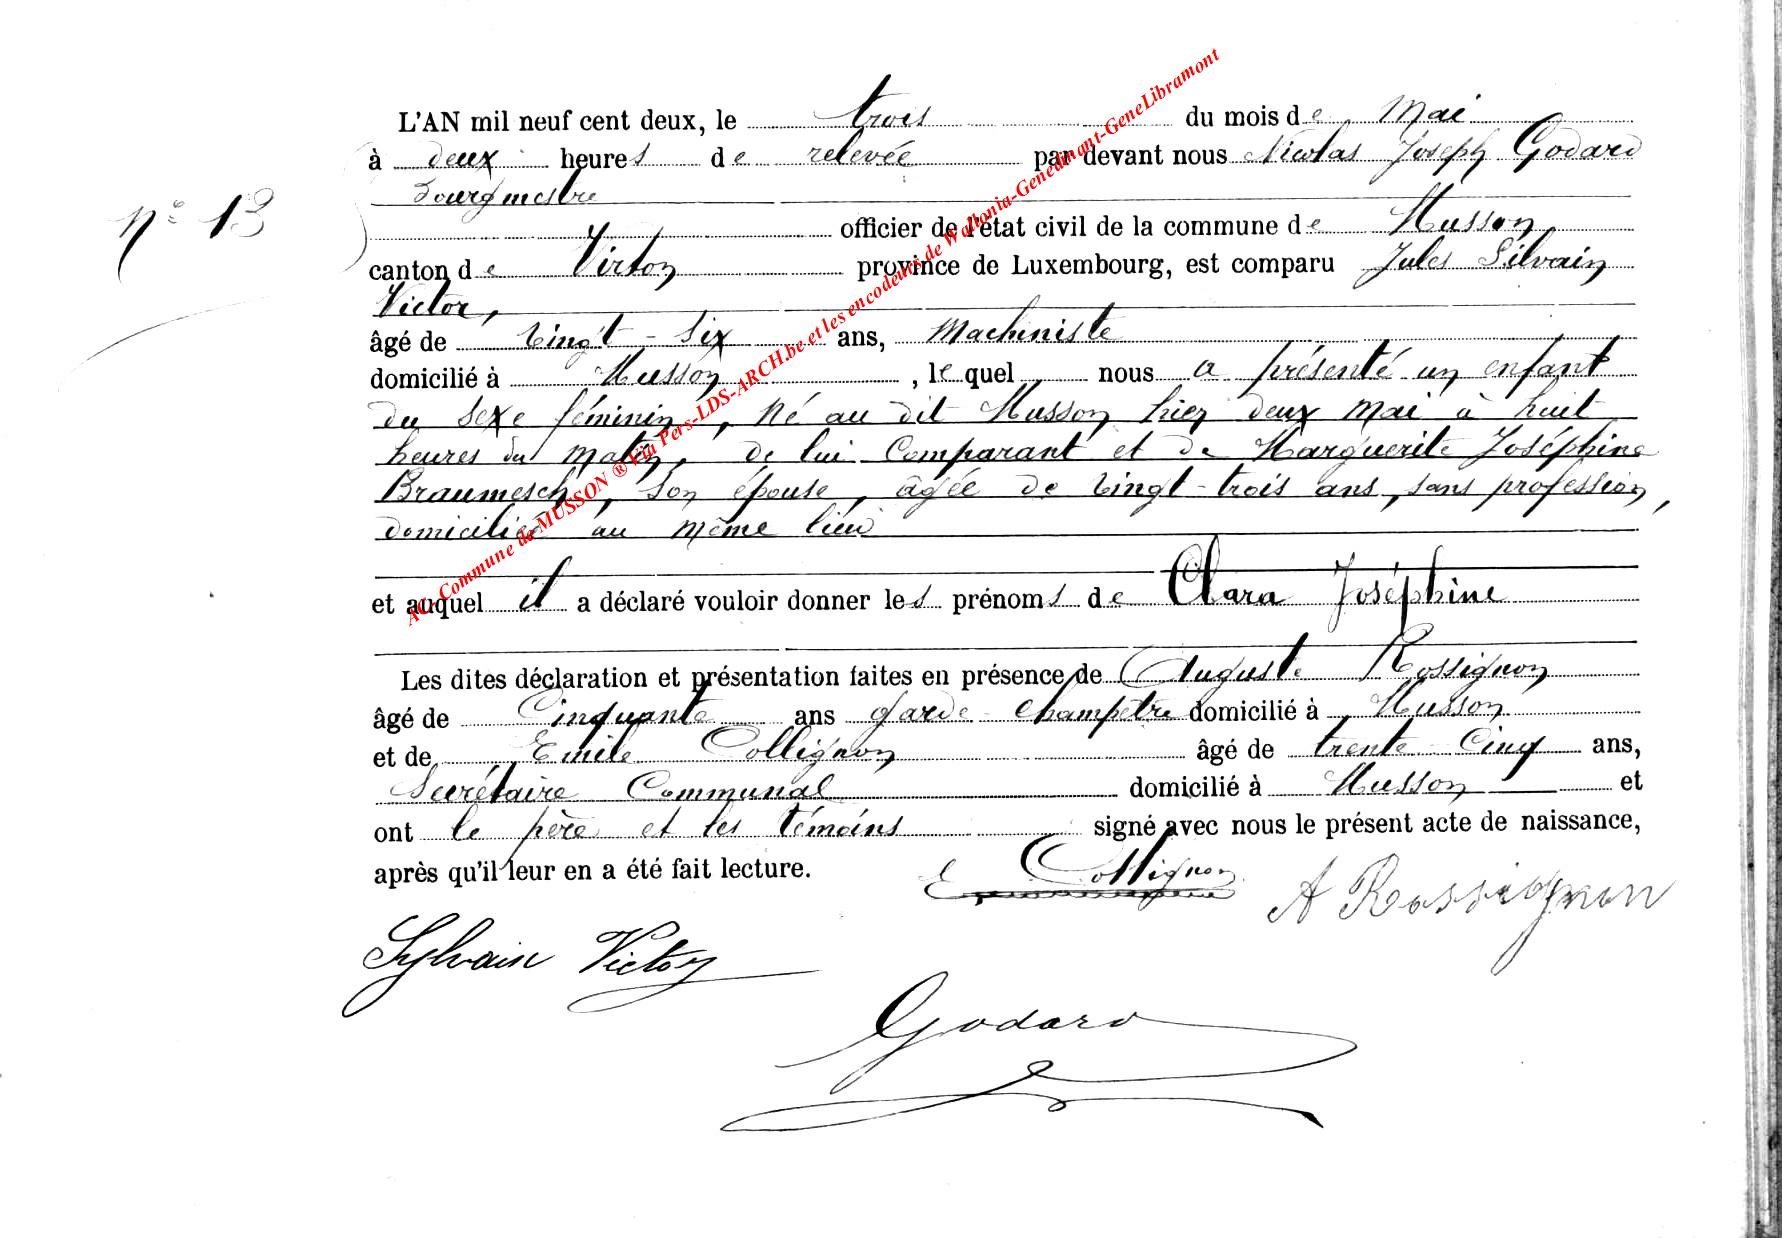 L'AN mil neuf cent deux, le trois du mois de Mai
à deux heures de relevée par devant nous Nicolas Joseph Godard
Bourgmestre
nº 13
officier de l'état civil de la commune de Musson
canton de Virton province de Luxembourg, est comparu Jules Silvain
Victor,
âgé de vingt-six ans, Machiniste
domicilié à Musson, lequel nous a présenté un enfant
du sexe féminin, né au dit Musson hier deux Mai à huit
heures du matin, de lui Comparant et de Marguerite Joséphine
Braumesch, son épouse, âgée de vingt-trois ans, sans profession,
domiciliée au même lieu
et auquel il a déclaré vouloir donner les prénoms de Clara Joséphine
Les dites déclaration et présentation faites en présence de Auguste Rossignon
âgé de Cinquante ans garde-champêtre domicilié à Musson
et de Emile Collignon âgé de trente-Cinq ans,
Secrétaire Communal domicilié à Musson et
ont le père et les témoins signé avec nous le présent acte de naissance,
après qu'il leur en a été fait lecture.
E Collignon
A Rossignon
Sylvain Victor
Godard
AC- Commune de MUSSON ® Via Pers-LDS-ARCH.be et les encodeurs de Wallonia-Genedinant-GeneLibramont